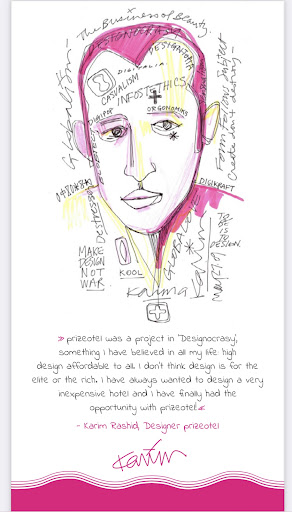 The Business of Beauty.
DESIGNOCRASY
DESIGNTOPIA
DIGITALIA
CASUALISM
INFOSTHETICS
DIGIPOP
ORGONOMIC
Globalism
Create don't destroy.
DIGIKRAFT
MAKE
DESIGN
NOT
WAR.
KOOL
KARMA
TO
BE
IS TO
DESIGN
Karim
» prizeotel was a project in 'Designocrasy',
something I have believed in all my life: high
design affordable to all. I don't think design is for the
elite or the rich. I have always wanted to design a very
inexpensive hotel and I have finally had the
opportunity with prizeotel!«
- Karim Rashid, Designer prizeotel
Karim